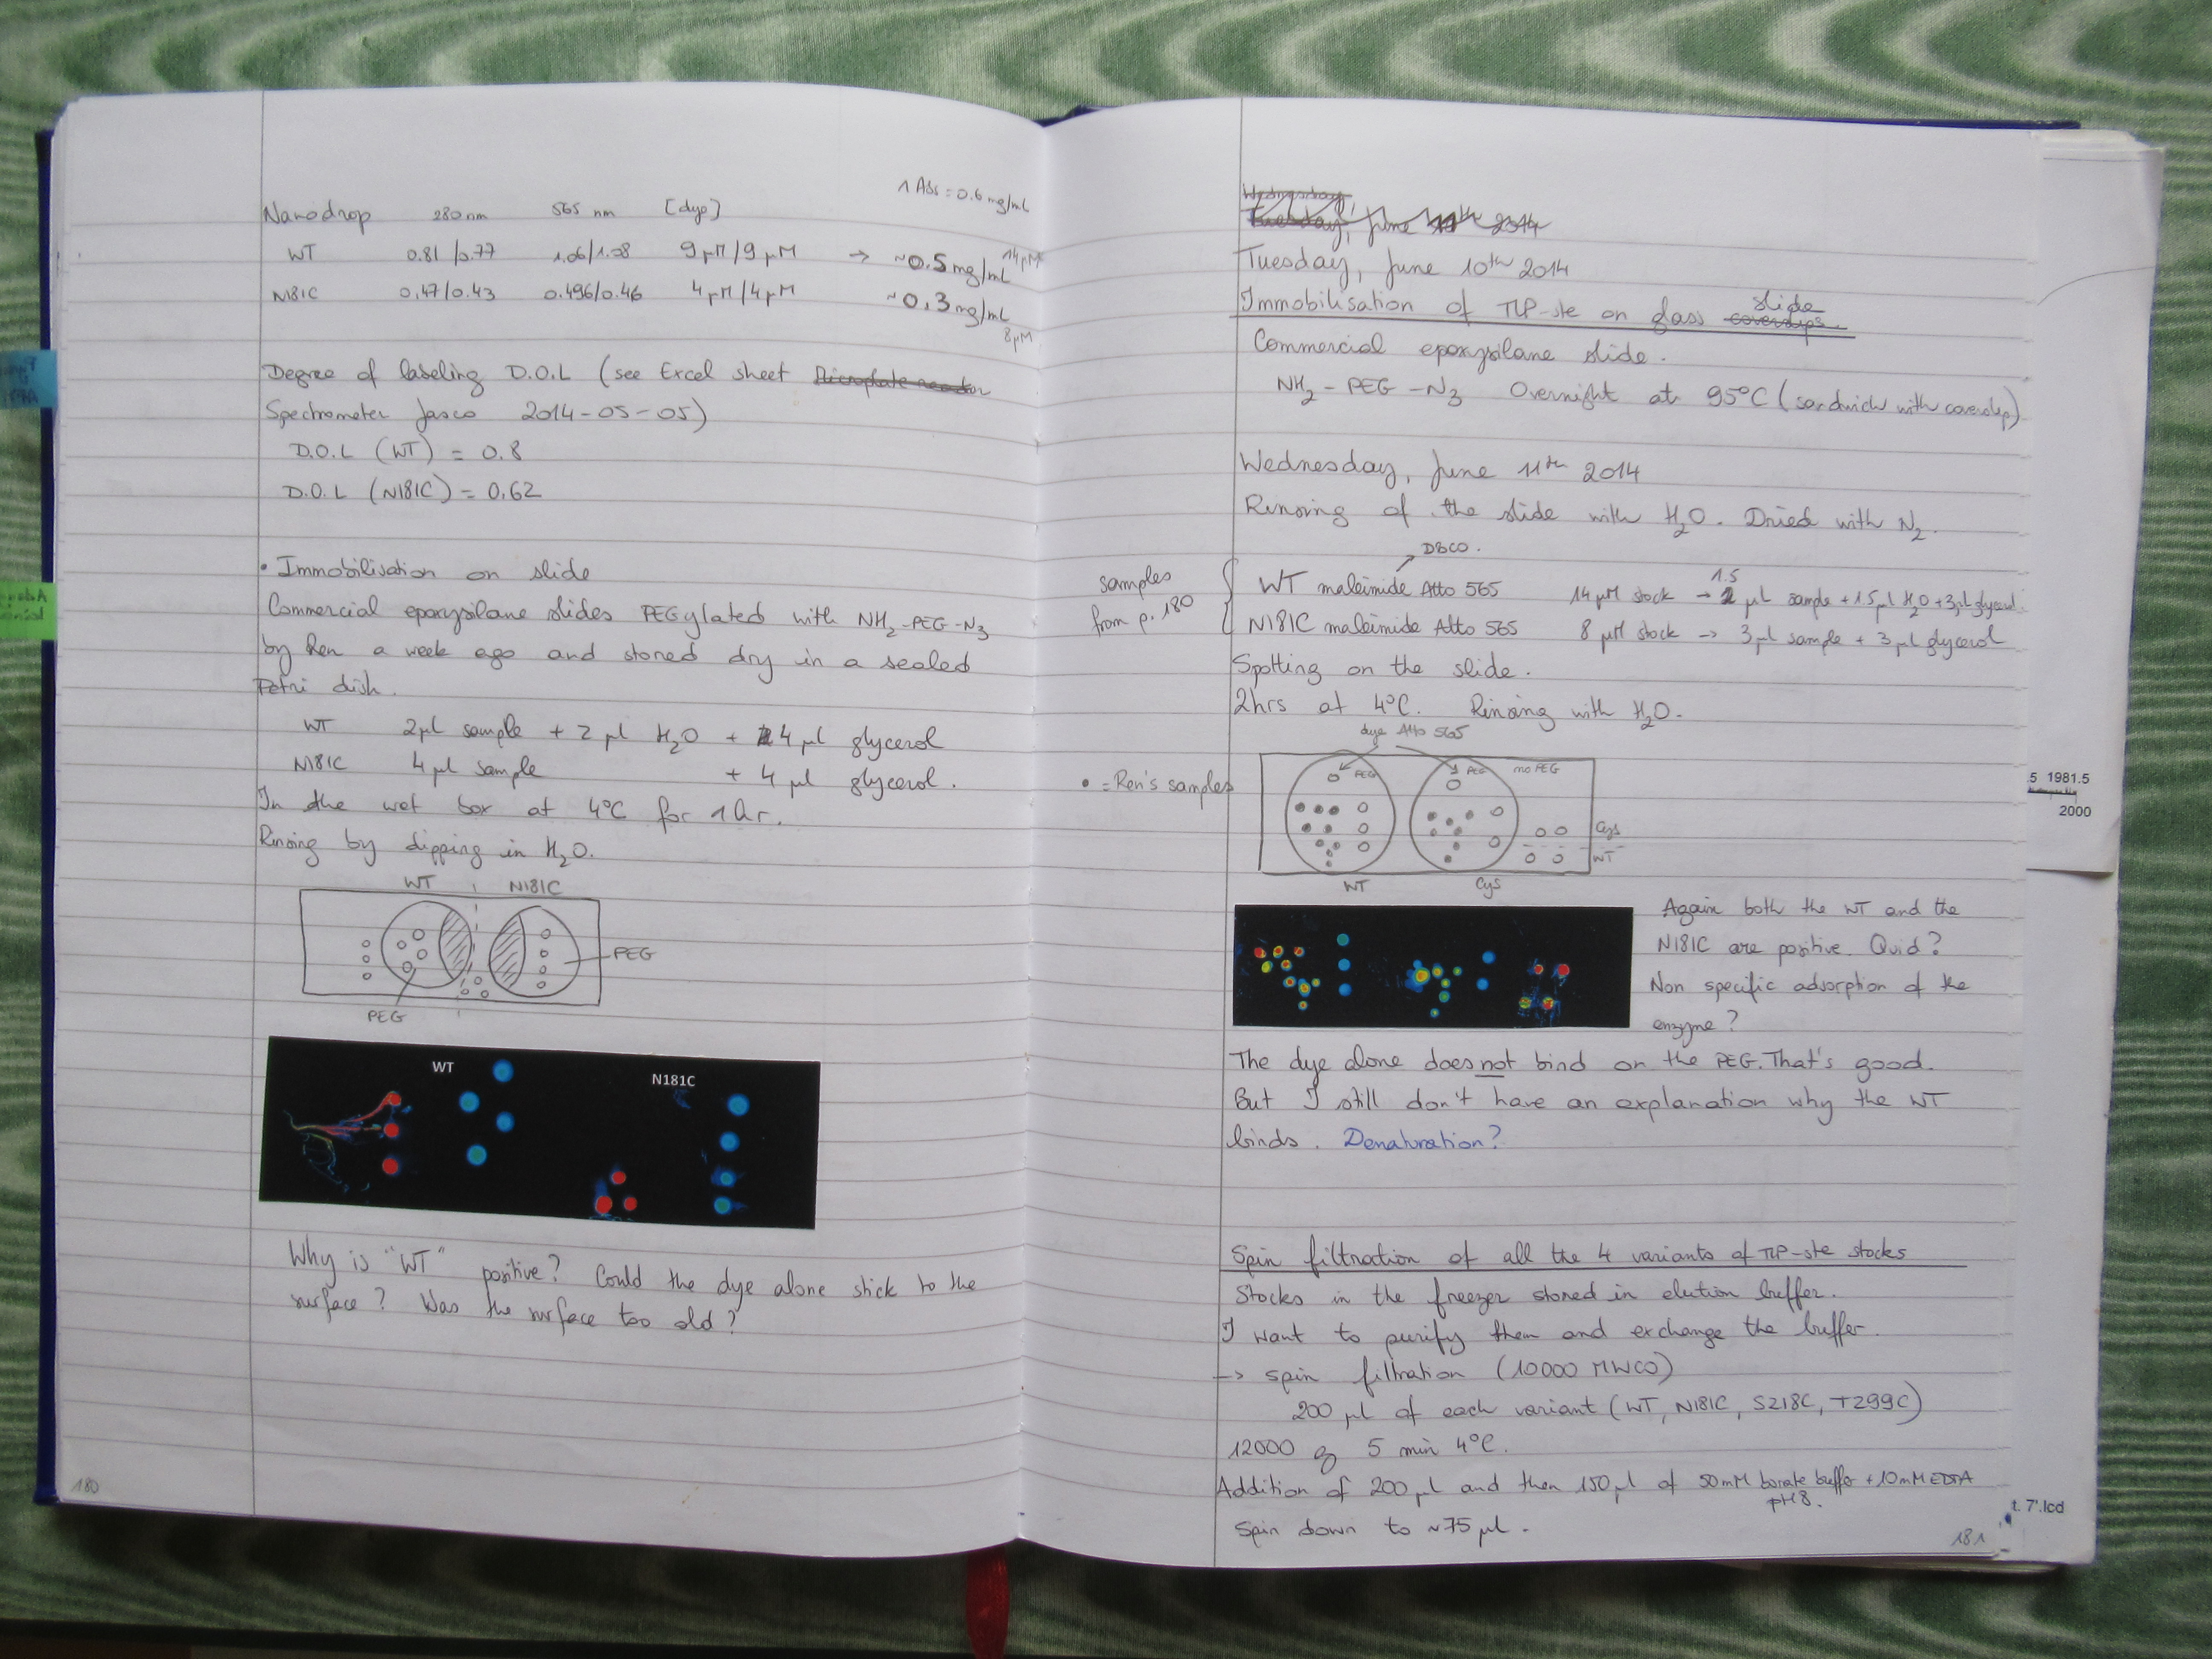 1 Abs = 0.6 mg/mL
Nanodrop 280 nm 565 nm [dye]
WT 0.81/0.77 1.06/1.08 9 µM/9 µM → ~0.5 mg/mL 14µM
N181C 0.47/0.43 0.496/0.46 4 µM/4 µM ~0.3 mg/mL
8µM
Degree of labeling D.O.L (see Excel sheet Microplate reader
Spectrometer Jasco 2014-05-05)
D.O.L (WT) = 0.8
D.O.L (N181C) = 0.62
• Immobilisation on slide
Commercial epoxysilane slides PEGylated with NH2-PEG-N3
by Ren a week ago and stored dry in a sealed
Petri dish.
WT 2µl sample + 2 µl H2O + 4 µl glycerol
N181C 4 µl sample + 4 µl glycerol.
In the wet box at 4°C for 1hr.
Rinsing by dipping in H2O.
WT N181C
PEG
PEG
WT
N181C
Why is "WT" positive? Could the dye alone stick to the
surface? Was the surface too old?
180
Wednesday,
Tuesday, June 2014
Tuesday, June 10th 2014
slide
Immobilisation of TLP-ste on glass coverslips.
Commercial epoxysilane slide.
NH2-PEG-N3 Overnight at 95°C (sandwich with coverslip)
Wednesday, June 11th 2014
Rinsing of the slide with H2O. Dried with N2.
DBCO.
samples
from p.180
WT maleimide Atto 565 14 µM stock → 1.5 µl sample + 1.5µl H2O + 3µl glycerol
N181C maleimide Atto 565 8 µM stock → 3 µl sample + 3 µl glycerol
Spotting on the slide.
2hrs at 4°C. Rinsing with H2O.
dye Atto 565
• = Ren's samples
PEG PEG no PEG
Cys
WT
WT Cys
Again both the WT and the
N181C are positive. Quid?
Non specific adsorption of the
enzyme?
The dye alone does not bind on the PEG. That's good.
But I still don't have an explanation why the WT
binds. Denaturation?
Spin filtration of all the 4 variants of TLP-ste stocks
Stocks in the freezer stored in elution buffer.
I want to purify them and exchange the buffer.
→ spin filtration (10000 MWCO)
200 µl of each variant (WT, N181C, S218C, T299C)
12000 g 5 min 4°C.
Addition of 200 µl and then 150 µl of 50mM borate buffer + 10mM EDTA
pH8.
Spin down to ~75 µl.
181
5 1981.5
2000
t. 7'.lcd